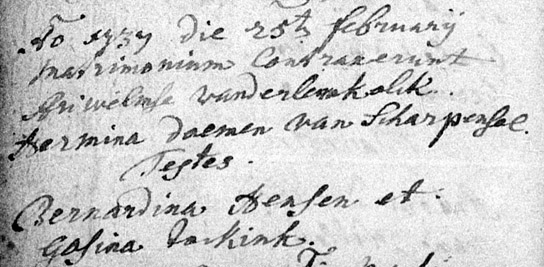 Ao 1737 die 25t februarij
matrimonium Contraxerunt
Ariwelmse vanderlemkolck.
Hermina daemen van Scharpensel.
Testes.
Bernardina Hensen et
Gosina